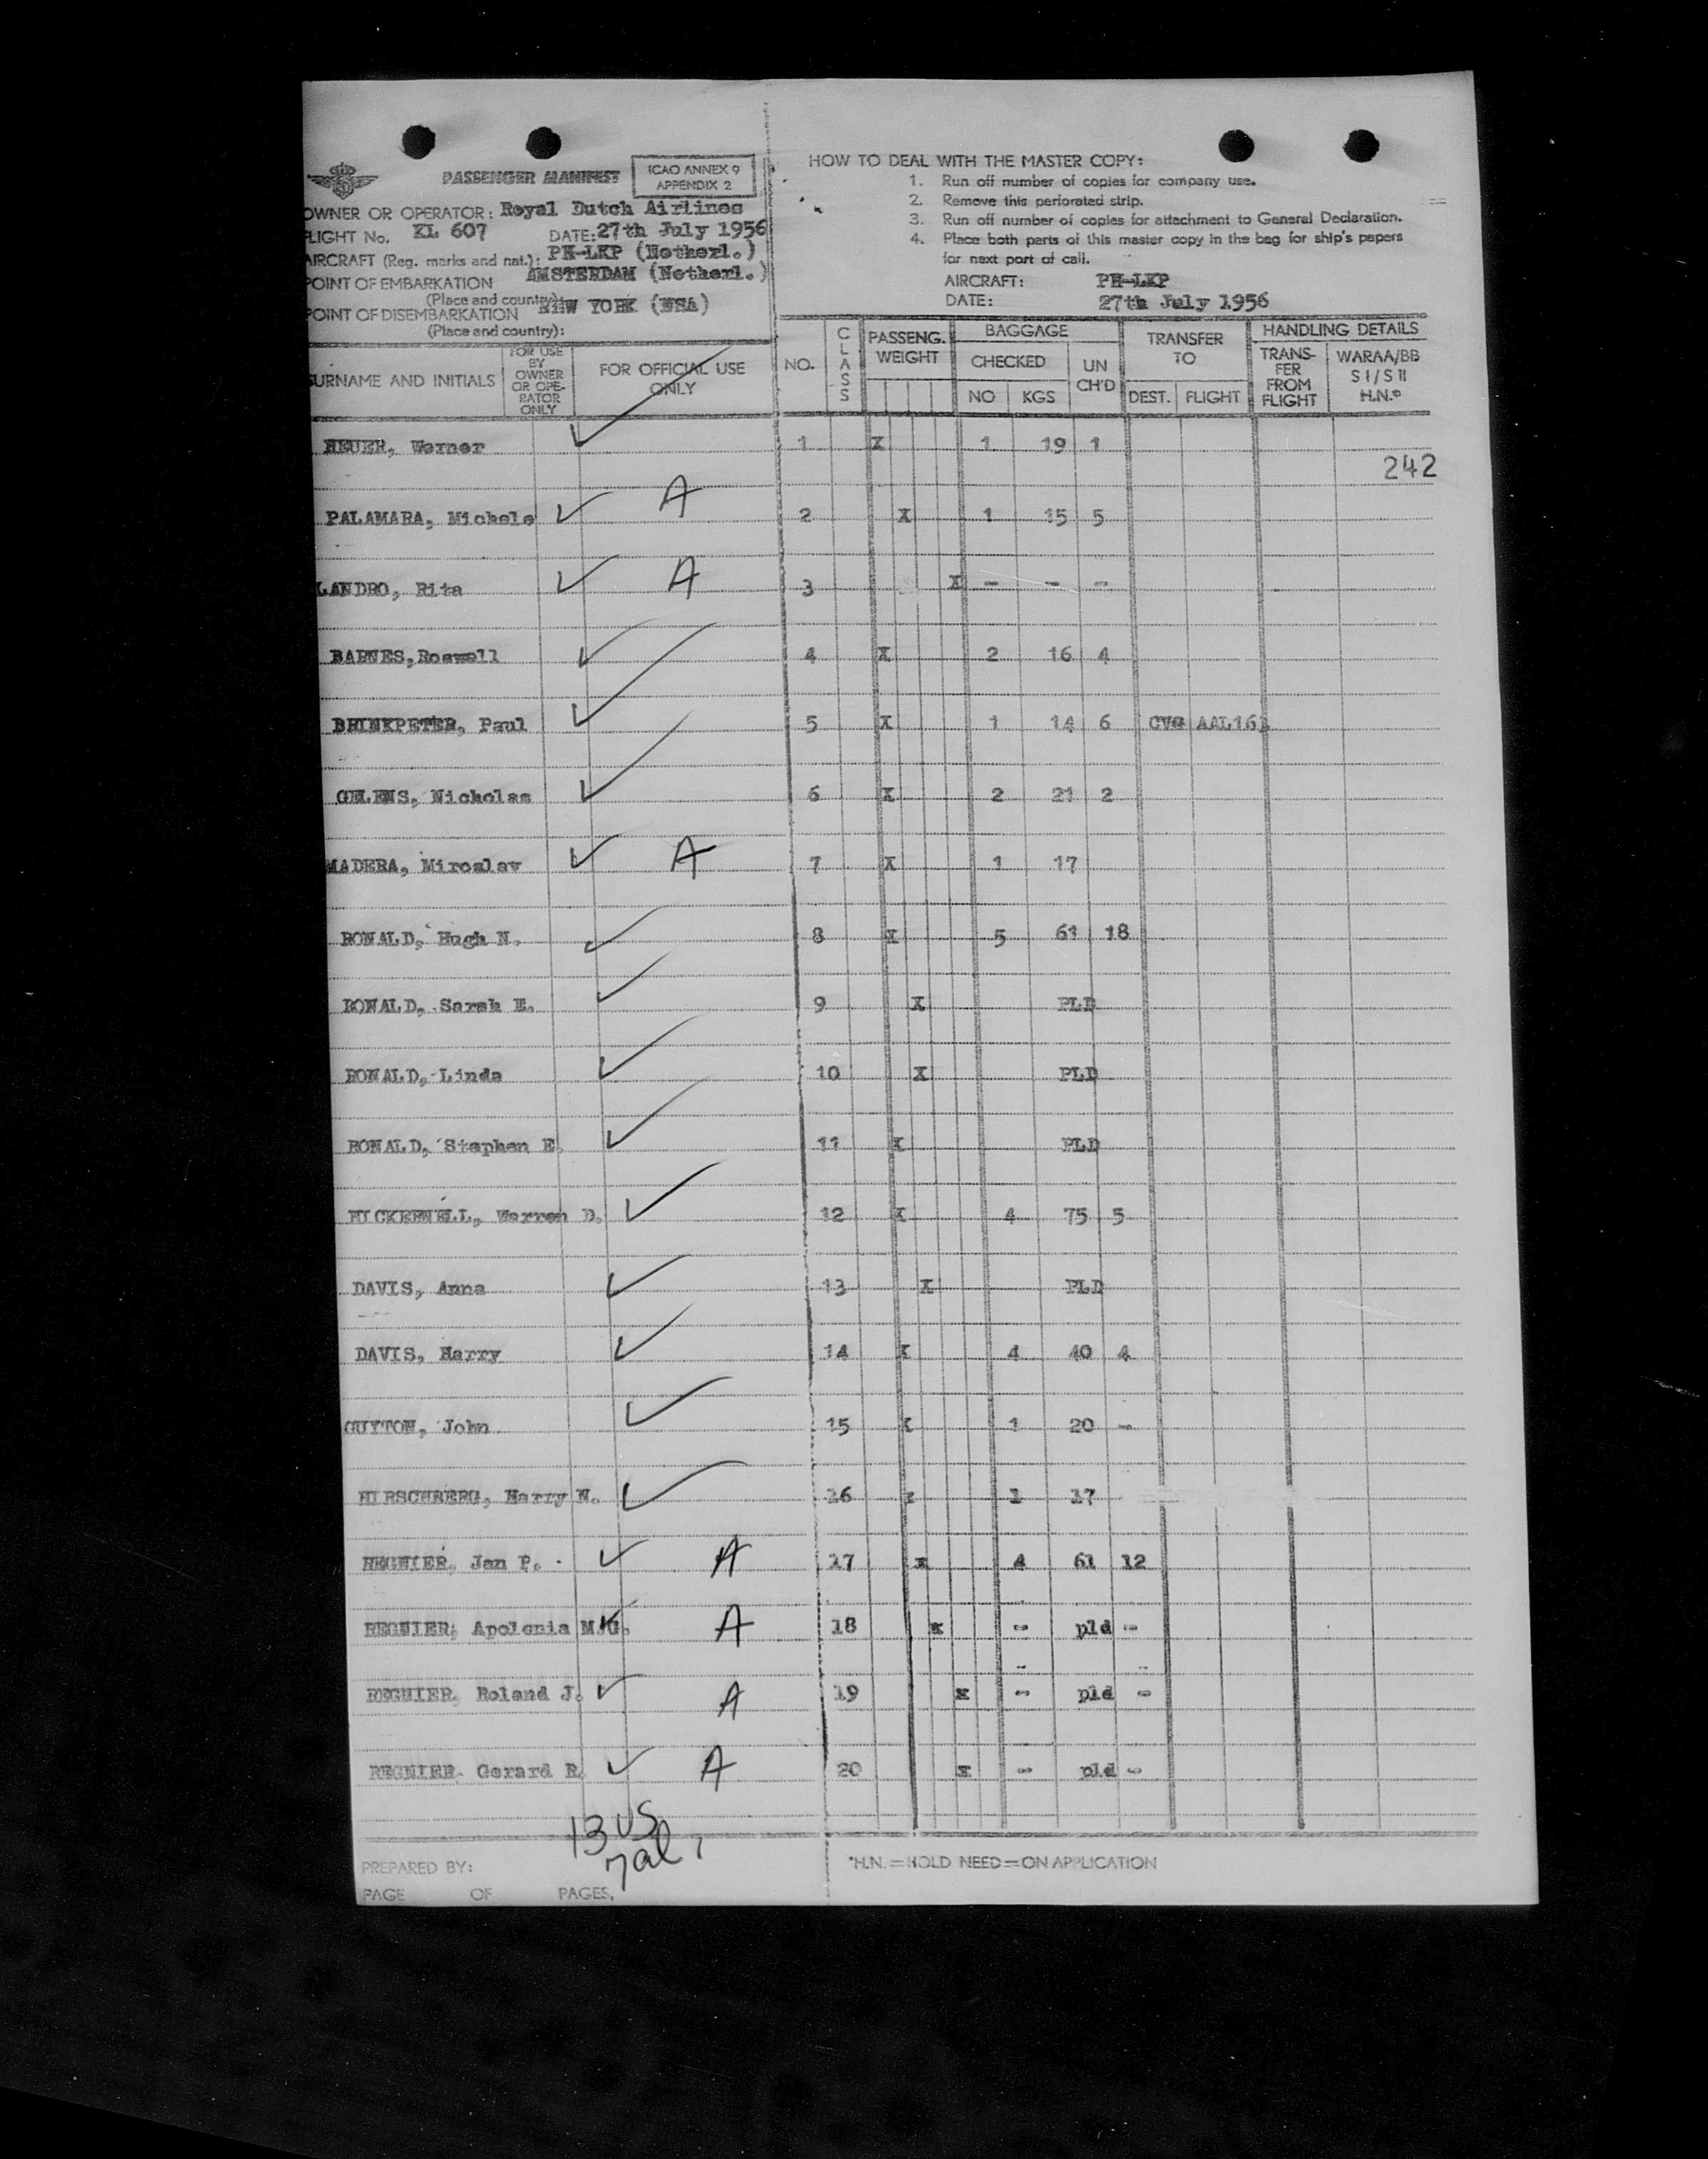 PASSENGER MANIFEST
ICAO ANNEX 9
APPENDIX 2
OWNER OR OPERATOR: Royal Dutch Airlines
FLIGHT No. KL 607 DATE: 27th July 1956
AIRCRAFT (Reg. marks and nat.): PH-LKP (Netherl.)
POINT OF EMBARKATION AMSTERDAM (Netherl.)
(Place and country):
POINT OF DISEMBARKATION NEW YORK (USA)
(Place and country):
HOW TO DEAL WITH THE MASTER COPY:
1. Run off number of copies for company use.
2. Remove this perforated strip.
3. Run off number of copies for attachment to General Declaration.
4. Place both parts of this master copy in the bag for ship's papers
for next port of call.
AIRCRAFT: PH-LKP
DATE: 27th July 1956
SURNAME AND INITIALS
FOR USE BY OWNER OR OPE-RATOR ONLY
FOR OFFICIAL USE ONLY
NO.
CLASS
PASSENG. WEIGHT
BAGGAGE
CHECKED
NO KGS
UN CH'D
TRANSFER TO
DEST. FLIGHT
HANDLING DETAILS
TRANS-FER FROM FLIGHT
WARAA/BB S I/S II H.N.*
HEUER, Werner ✓ 1 X 1 19 1
242
PALAMARA, Michele ✓ A 2 X 1 15 5
LANDRO, Rita ✓ A 3 X - - -
BARNES, Roswell ✓ 4 X 2 16 4
BRINKPETER, Paul ✓ 5 X 1 14 6 CVG AAL163
GELENS, Nicholas ✓ 6 X 2 21 2
MADERA, Miroslav ✓ A 7 X 1 17
RONALD, Hugh N. ✓ 8 X 5 61 18
RONALD, Sarah E. ✓ 9 X PLD
RONALD, Linda ✓ 10 X PLD
RONALD, Stephen E. ✓ 11 X PLD
HICKERNELL, Warren D. ✓ 12 X 4 75 5
DAVIS, Anna ✓ 13 X PLD
DAVIS, Harry ✓ 14 X 4 40 4
GUYTON, John ✓ 15 X 1 20 -
HIRSCHBERG, Harry N. ✓ 16 x 1 17
REGNIER, Jan P. ✓ A 17 x 4 61 12
REGNIER, Apolonia M.G. ✓ A 18 x - pld -
REGNIER, Roland J. ✓ A 19 x - pld -
REGNIER, Gerard R. ✓ A 20 x - pld -
13 US
7 al
PREPARED BY:
PAGE OF PAGES,
*H.N. = HOLD NEED = ON APPLICATION